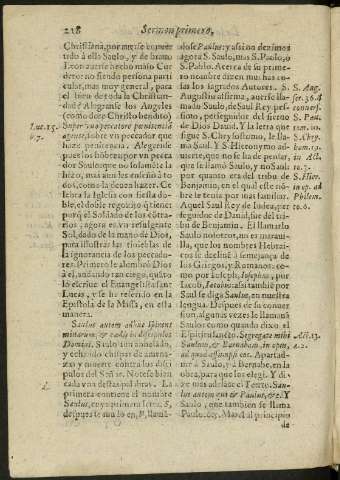 218 Sermon primero,
Christiana, por averse conver
tido à ella Saulo, y de bravo
Leon averse hecho manso Cor
dero: no siendo persona parti
cular, mas muy general, para
el bien de toda la Christian-
dad? Alegranse los Angeles
(como dize Christo bendito)
Luc. 15. Super uno peccatore pœnitentiã
v. 7. agente, sobre un peccador que
haze penitencia. Alegrende
pues los hõbres por un pecca
dor Saulo: que no solamẽte la
hizo, mas aun enseñò à to-
dos, como la devẽ hazer. Ce
lebra la Iglesia con fiesta do-
ble, el doble regozijo q̃ tiene:
porq̃ el Soldado de los cõtra-
rios, agora es un refulgente
Sol, dado de la mano de Dios,
para illustrar las tinieblas de
la ignorancia de los peccado-
res. Primero le alumbrò Dios
à el, andando tan ciego, quãto
lo escrive el Evangelista sant
Lucas, y se ha referido en la
Epistola de la Missa, en esta
manera.
Saulus autem adhuc spirans
minarum, & cædis in discipulos
Domini. Saulo aun anhelado,
y echando chispas de amena-
zas y muerte contra los disci
pulos del Señor. Notese bien
cada vna destas palabras. La
primera contiene el nombre
Saulus, cuya primera letra, S,
despues se mudò en, P, llamã-
dose Paulus: y assi no dezimos
agora S. Saulo, mas S. Paulo, o
S. Pablo. Acerca de su prime-
ro nombre dizen muchas co-
sas los sagrados Autores. S. S. Aug.
Augustin afirma, averse lla- ser. 36. d
mado Saulo, de Saul Rey, per-
seguidor del siervo S. Pau.
de Dios David. Y la letra que tom. 10.
sigue S. Chrysostomo, le lla- S. Chry.
ma Saul. Y S. Hieronymo ad- hom. 19.
uierte, que no se ha de pensar, in Act.
que se llama Saulo, y no Saul: to. 3.
por quanto era del tribu de S. Hier.
Benjamin, en el qual este nõ- in ep. ad
bre le tenia por mas familiar. Philem.
Aquel Saul Rey de Iudea, per to. 6.
seguidor de David, fue del tri-
bu de Benjamin. El llamarla
Saulo nosotros, no es maravi-
lla, que los nombres Hebrai-
cos se declinẽ à semejança de
los Griegos, y Romanos: co-
mo por Ioseph, Iosephus, por
Iacob, Iacobus: assi tambiẽ por
Saul se diga Saulus, en nuestra
lengua. Despues de su conver
sion, algunas vezes le llamarõ
Saulo: como quando dixo el
Espiritusancto. Segregate mihi Act. 13.
Saulum, & Barnabam, in opus, v. 2.
ad quod assumpsi eos. Apartad-
me à Saulo, y à Bernabe, en la
obra, para que los elegi. Y di-
ze mas adelante el Texto. Sau-
lus autem qui & Paulus, &c. Y
Saulo, que tambien se llama
Paulo: &c. Mas al principio
de